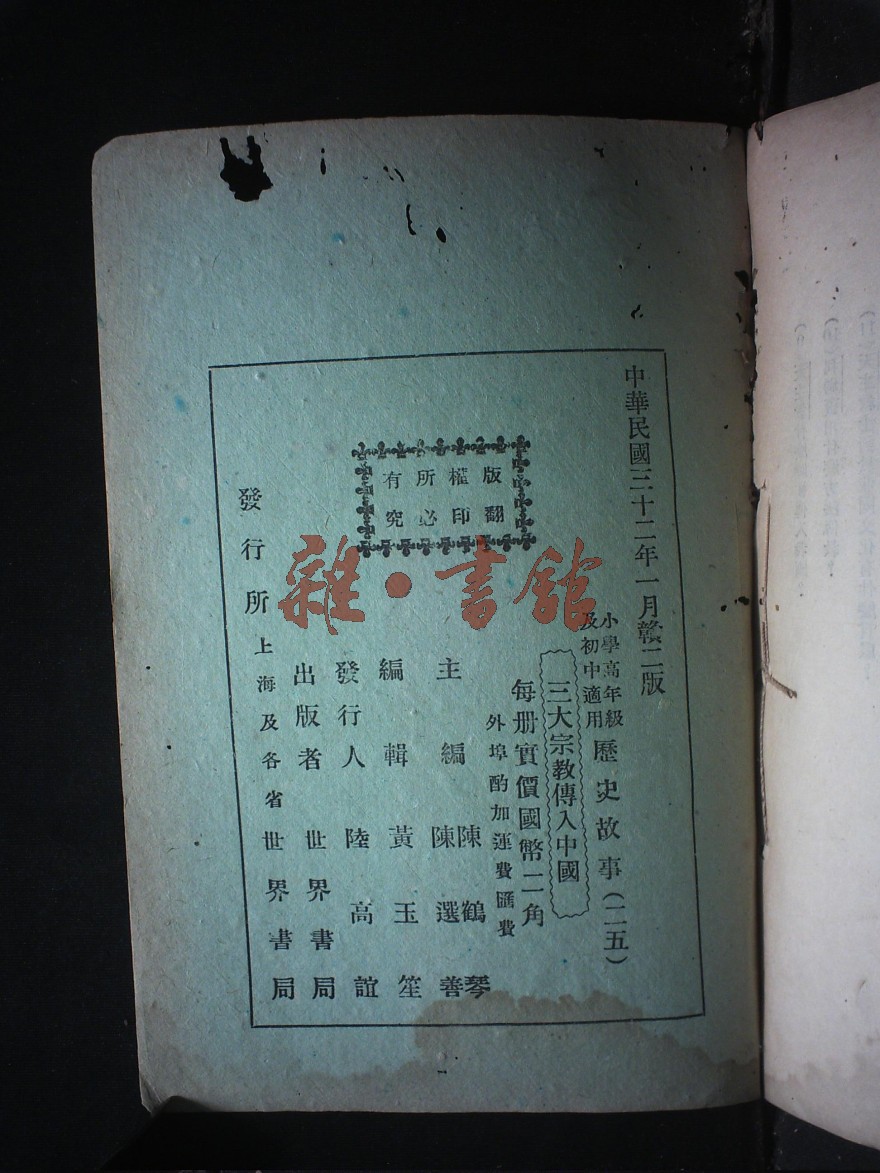 中華民國三十二年一月贛二版
小學高年級
及初中適用
歷史故事（二五）
三大宗教傳入中國
每册實價國幣二角
外埠酌加運費匯費
版權所有
翻印必究
主編 陳鶴琴
陳選善
編輯 黃玉笙
發行人 陸高誼
出版者 世界書局
發行所 上海及各省 世界書局
雜·書館